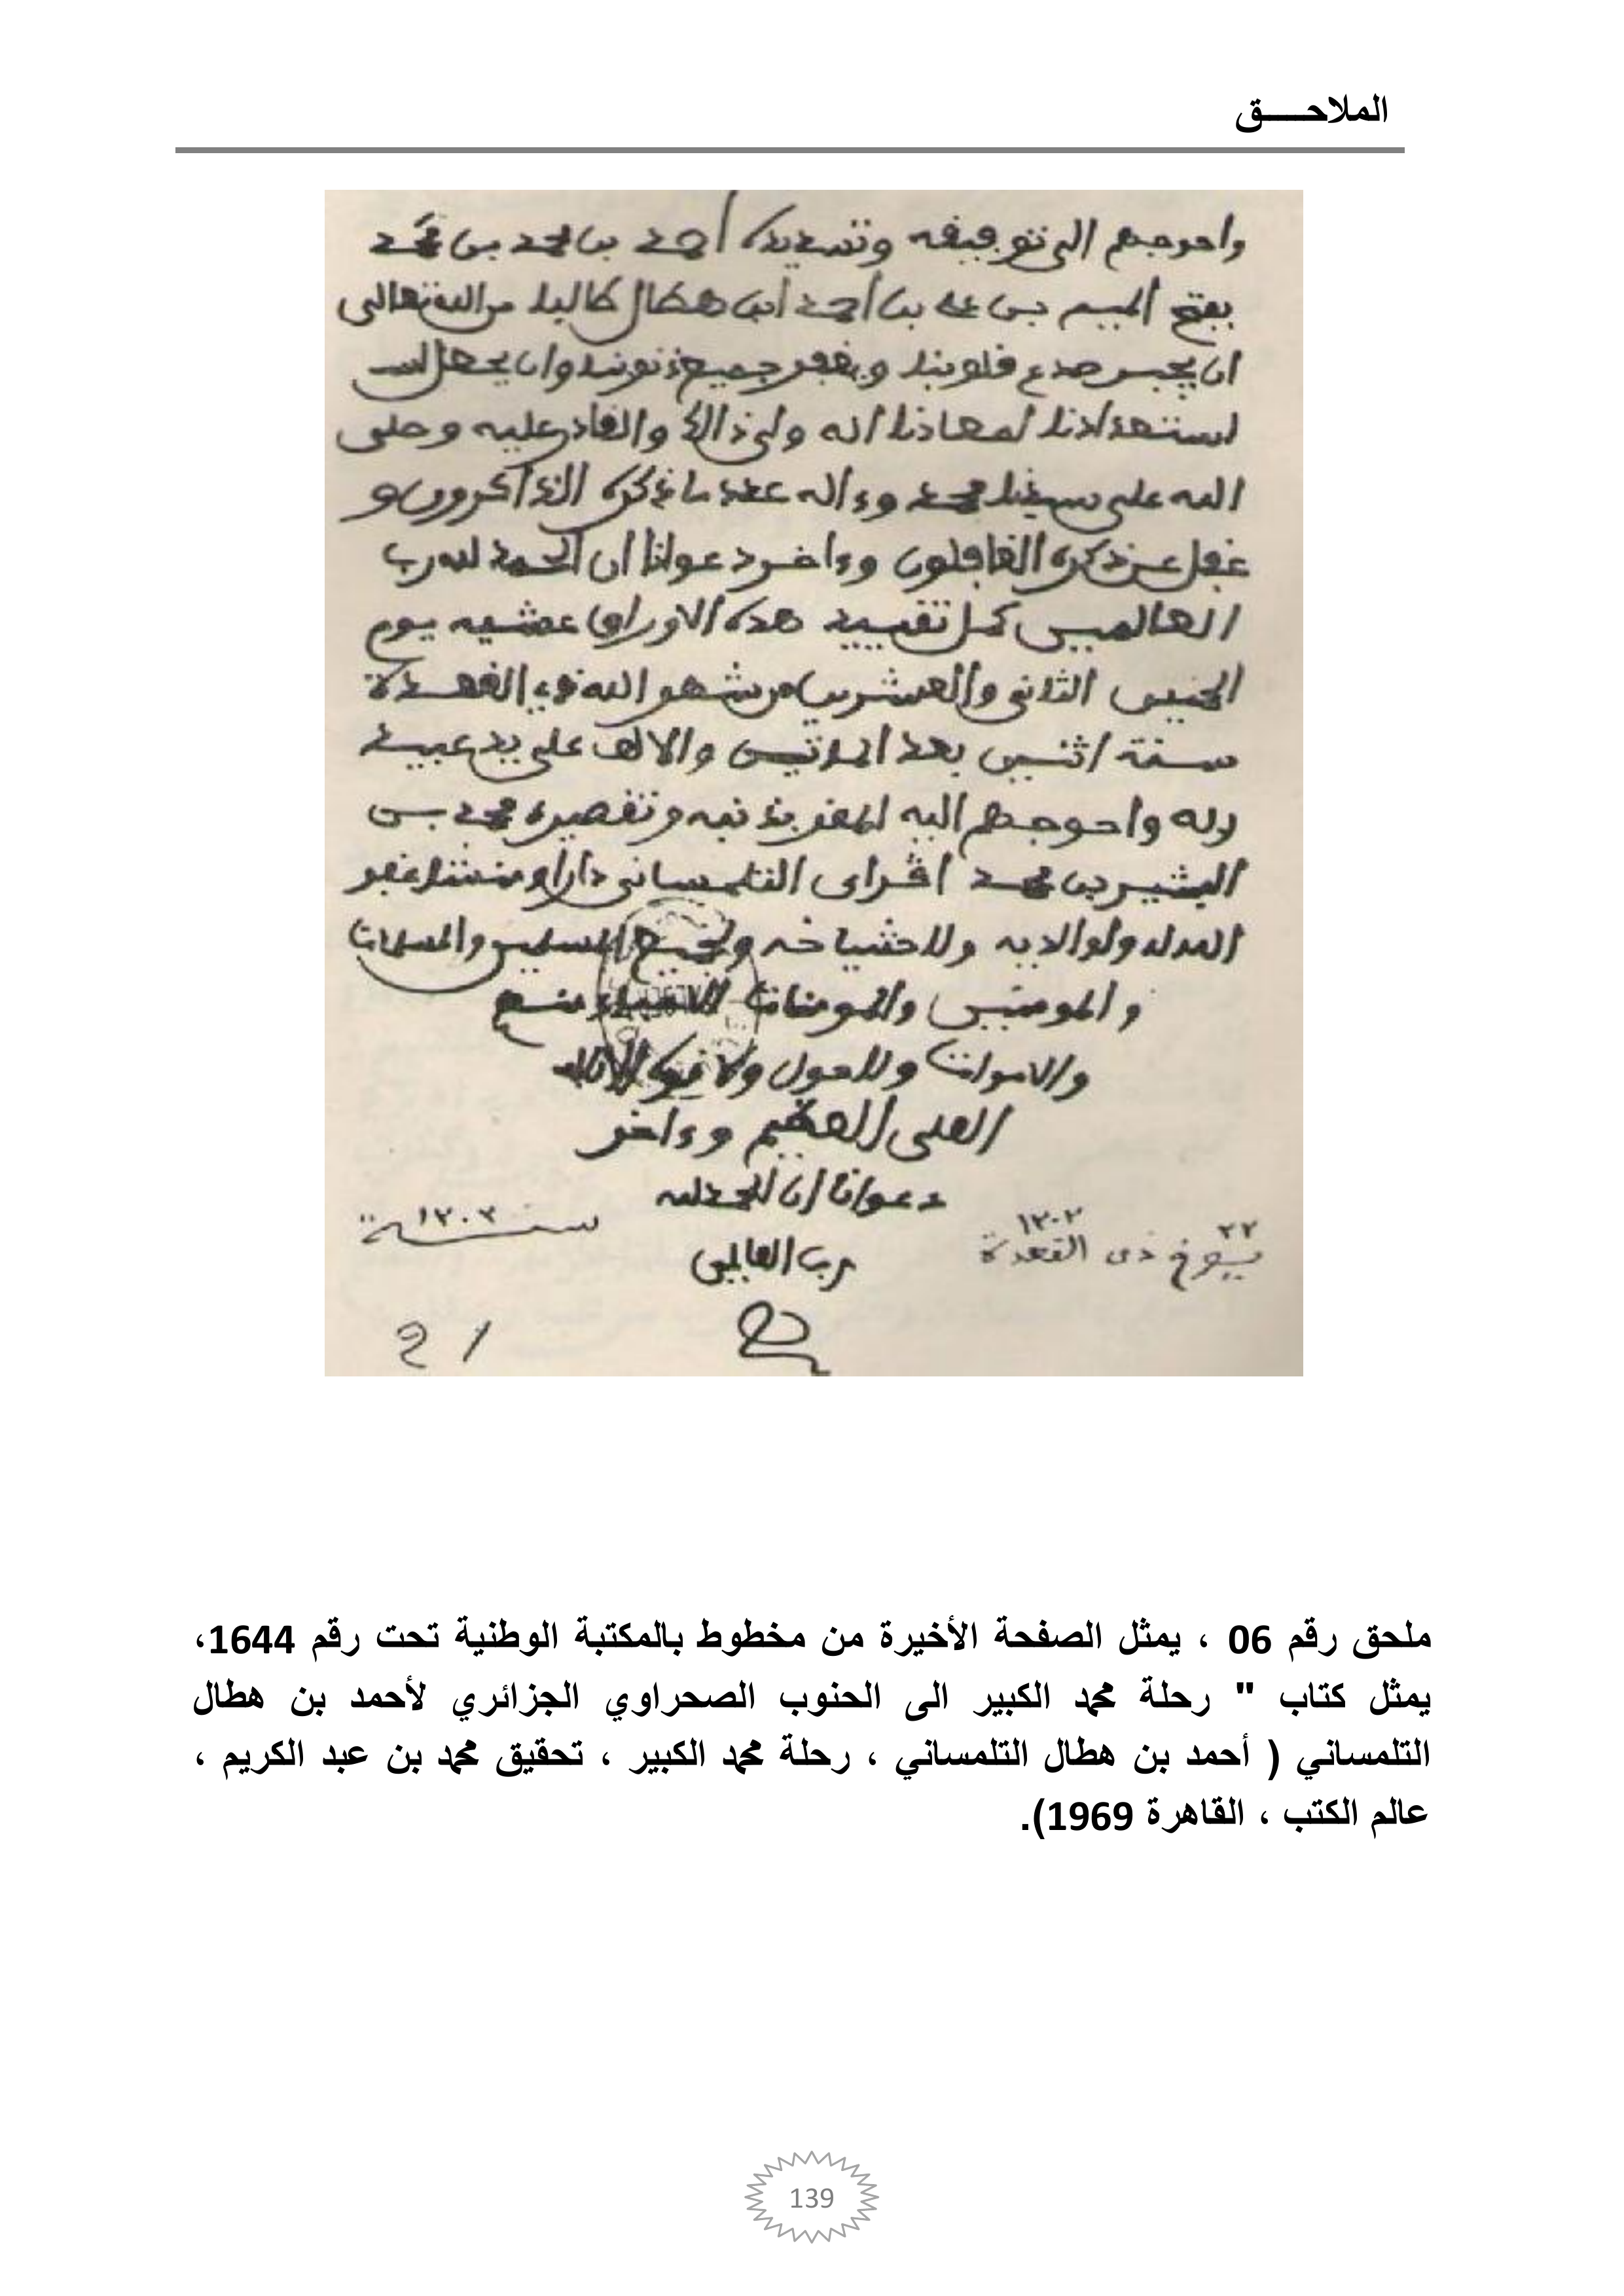 الملاحـــــق
واحوجهم الى توفيقه وتسديده أحمد بن محمد بن محمد
بفتح الميم بن علي بن أحمد ابن هطال طالبا من الله تعالى
ان يجبر صدع قلوبنا ويغفر جميع ذنوبنا وان يجعل
استعدادنا لمعادنا انه ولي ذالك والقادر عليه وصلى
الله على سيدنا محمد وءاله عدد ما ذكره الذاكرون و
غفل عن ذكره الغافلون وءاخر دعوانا ان الحمد لله رب
العالمين كمل تقييد هذه الاوراق عشية يوم
الخميس الثاني والعشرين من شهر الله ذي القعدة
سنة اثنين بعد المائتين والالف على يد عبيد
ربه واحوجهم اليه المقر بذنبه وتقصيره محمد بن
البشير بن محمد التلمساني دارا ومنشئا غفر
الله له ولوالديه ولاشياخه ولجميع المسلمين والمسلمات
والمومنين والمومنات الاحياء منهم
والاموات ولا حول ولا قوة الا بالله
العلي العظيم وءاخر
دعوانا ان الحمد لله
رب العالمين
٢٢ ١٢٠٢
ذي القعدة
سنة ١٢٠٢
ملحق رقم 06 ، يمثل الصفحة الأخيرة من مخطوط بالمكتبة الوطنية تحت رقم 1644،
يمثل كتاب " رحلة محمد الكبير الى الحنوب الصحراوي الجزائري لأحمد بن هطال
التلمساني ( أحمد بن هطال التلمساني ، رحلة محمد الكبير ، تحقيق محمد بن عبد الكريم ،
عالم الكتب ، القاهرة 1969).
139